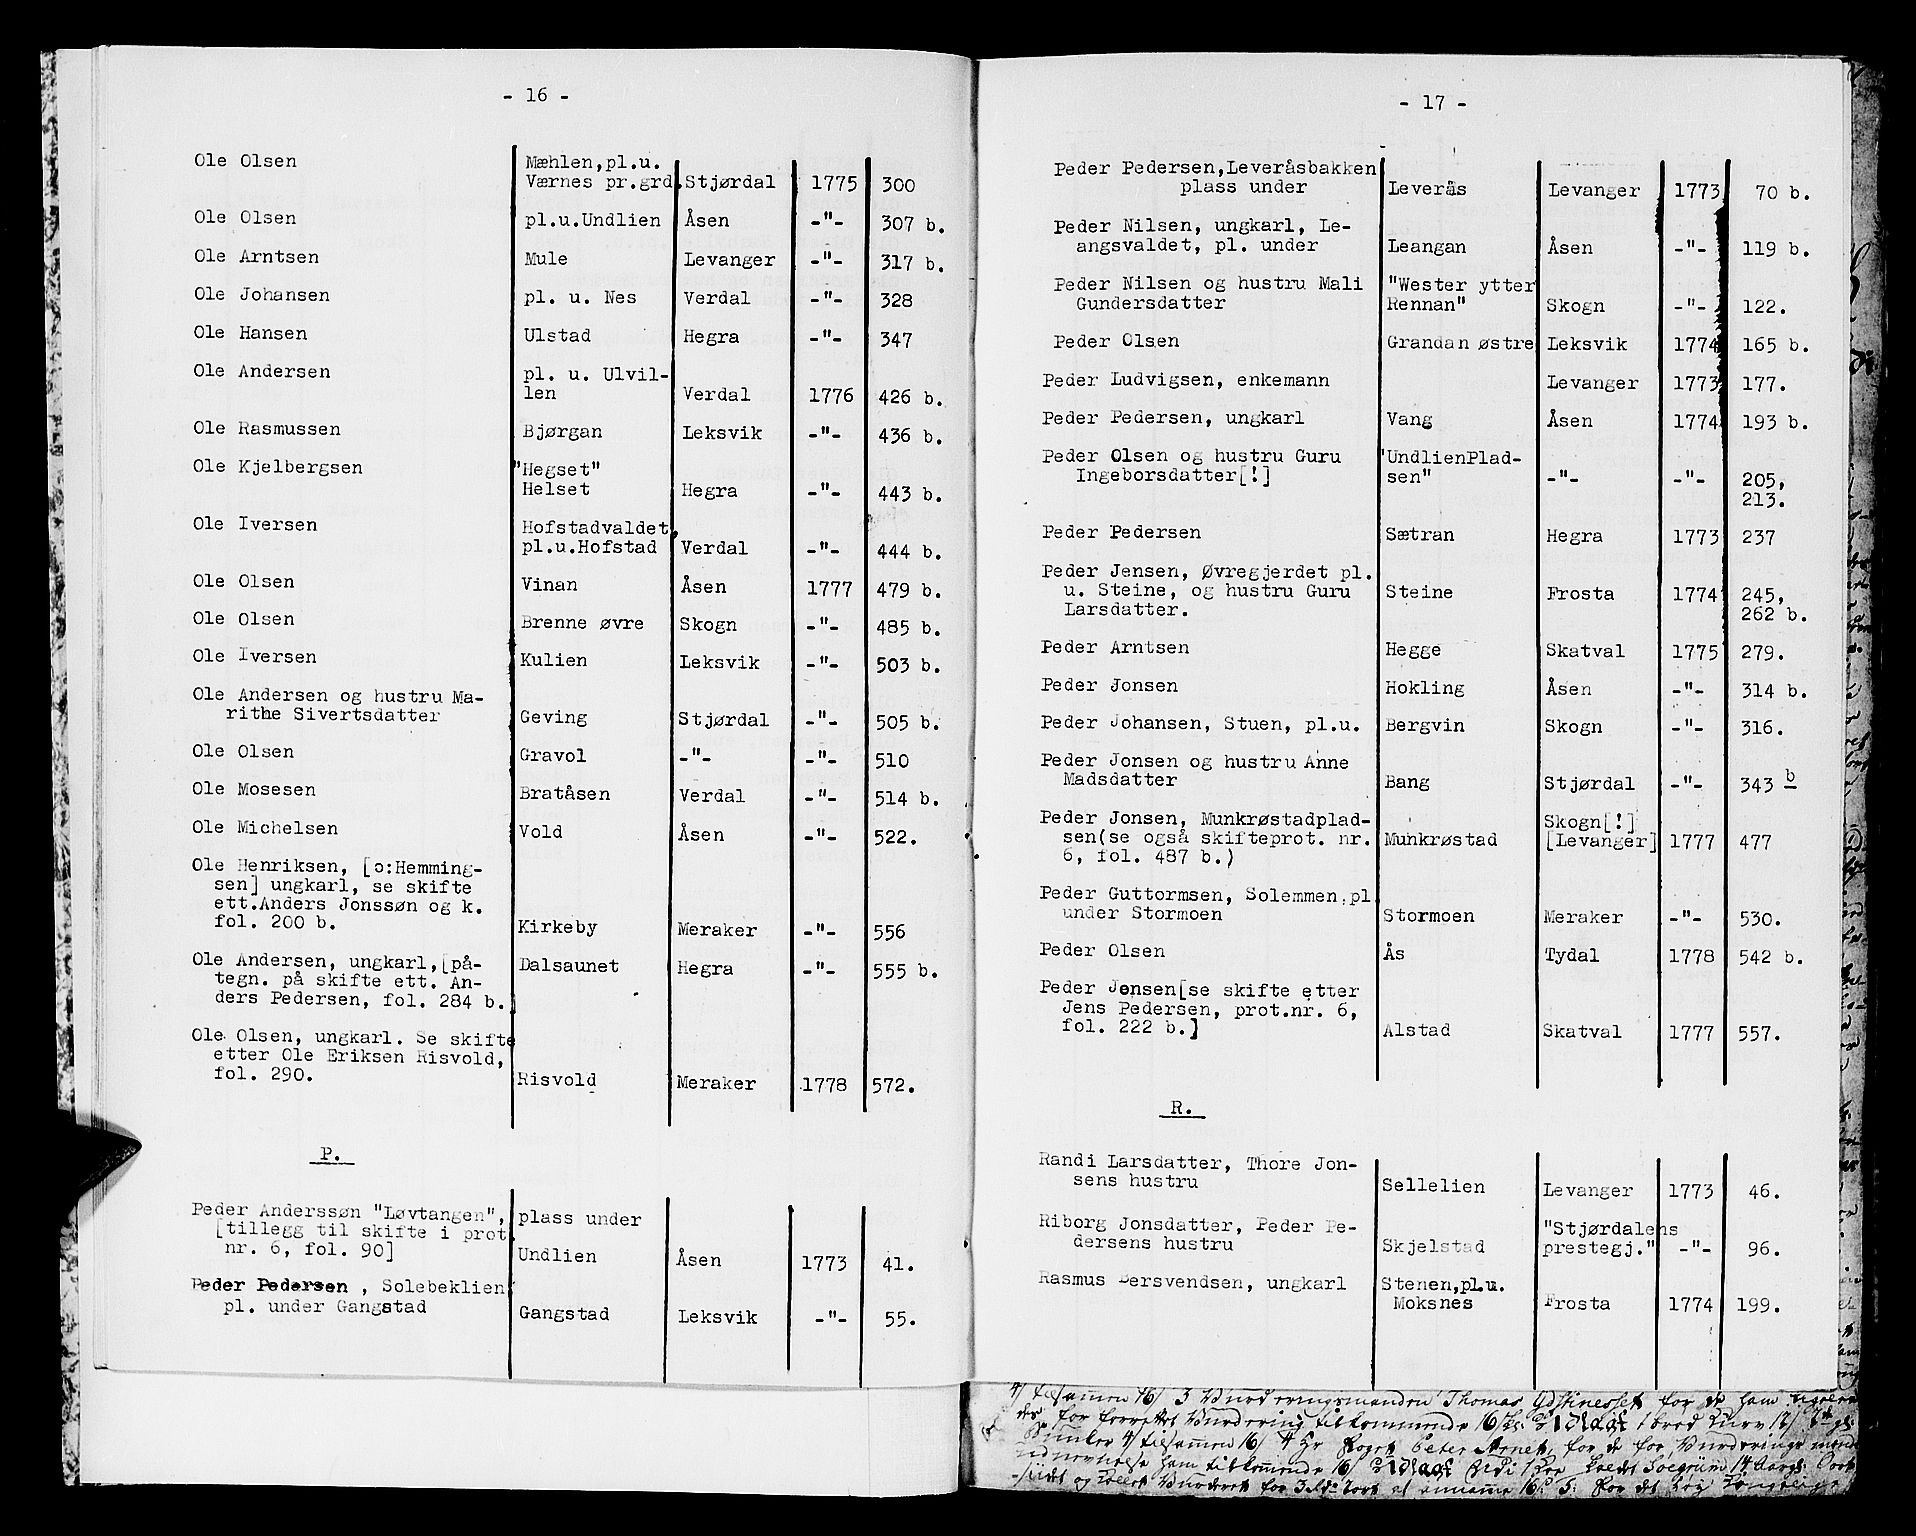 - 16 -
Ole Olsen Mæhlen,pl.u.
Værnes pr.grd. Stjørdal 1775 300
Ole Olsen pl.u.Undlien Åsen -"- 307 b.
Ole Arntsen Mule Levanger -"- 317 b.
Ole Johansen pl. u. Nes Verdal -"- 328
Ole Hansen Ulstad Hegra -"- 347
Ole Andersen pl. u. Ulvil-
len Verdal 1776 426 b.
Ole Rasmussen Bjørgan Leksvik -"- 436 b.
Ole Kjelbergsen "Hegset"
Helset Hegra -"- 443 b.
Ole Iversen Hofstadvaldet,
pl.u.Hofstad Verdal -"- 444 b.
Ole Olsen Vinan Åsen 1777 479 b.
Ole Olsen Brenne øvre Skogn -"- 485 b.
Ole Iversen Kulien Leksvik -"- 503 b.
Ole Andersen og hustru Ma-
rithe Sivertsdatter Geving Stjørdal -"- 505 b.
Ole Olsen Gravol -"- -"- 510
Ole Mosesen Bratåsen Verdal -"- 514 b.
Ole Michelsen Vold Åsen -"- 522.
Ole Henriksen, [o:Hemming-
sen] ungkarl, se skifte
ett.Anders Jonssøn og k.
fol. 200 b. Kirkeby Meraker -"- 556
Ole Andersen, ungkarl,[på- Dalsaunet Hegra -"- 555 b.
tegn. på skifte ett. An-
ders Pedersen, fol. 284 b.]
Ole Olsen, ungkarl. Se skifte
etter Ole Eriksen Risvold,
fol. 290. Risvold Meraker 1778 572.
P.
Peder Anderssøn "Løvtangen", plass under
[tillegg til skifte i prot.
nr. 6, fol. 90] Undlien Åsen 1773 41.
Peder Pedersen , Solebeklien
pl. under Gangstad Gangstad Leksvik -"- 55.
- 17 -
Peder Pedersen,Leveråsbakken
plass under Leverås Levanger 1773 70 b.
Peder Nilsen, ungkarl, Le-
angsvaldet, pl. under Leangan Åsen -"- 119 b.
Peder Nilsen og hustru Mali "Wester ytter
Gundersdatter Rennan" Skogn -"- 122.
Peder Olsen Grandan østre Leksvik 1774 165 b.
Peder Ludvigsen, enkemann Levanger 1773 177.
Peder Pedersen, ungkarl Vang Åsen 1774 193 b.
Peder Olsen og hustru Guru "UndlienPlad-
Ingeborsdatter[!] sen" -"- -"- 205,
213.
Peder Pedersen Sætran Hegra 1773 237
Peder Jensen, Øvregjerdet pl.
u. Steine, og hustru Guru Steine Frosta 1774 245,
Larsdatter. 262 b.
Peder Arntsen Hegge Skatval 1775 279.
Peder Jonsen Hokling Åsen -"- 314 b.
Peder Johansen, Stuen, pl.u. Bergvin Skogn -"- 316.
Peder Jonsen og hustru Anne
Madsdatter Bang Stjørdal -"- 343 b
Peder Jonsen, Munkrøstadplad- Skogn[!]
sen(se også skifteprot. nr. Munkrøstad [Levanger] 1777 477
6, fol. 487 b.)
Peder Guttormsen, Solemmen,pl.
under Stormoen Stormoen Meraker -"- 530.
Peder Olsen Ås Tydal 1778 542 b.
Peder Jensen[se skifte etter
Jens Pedersen, prot.nr. 6,
fol. 222 b.] Alstad Skatval 1777 557.
R.
Randi Larsdatter, Thore Jon-
sens hustru Sellelien Levanger 1773 46.
Riborg Jonsdatter, Peder Pe- "Stjørdalens
dersens hustru Skjelstad prestegj." -"- 96.
Rasmus Persvendsen, ungkarl Stenen,pl.u.
Moksnes Frosta 1774 199.